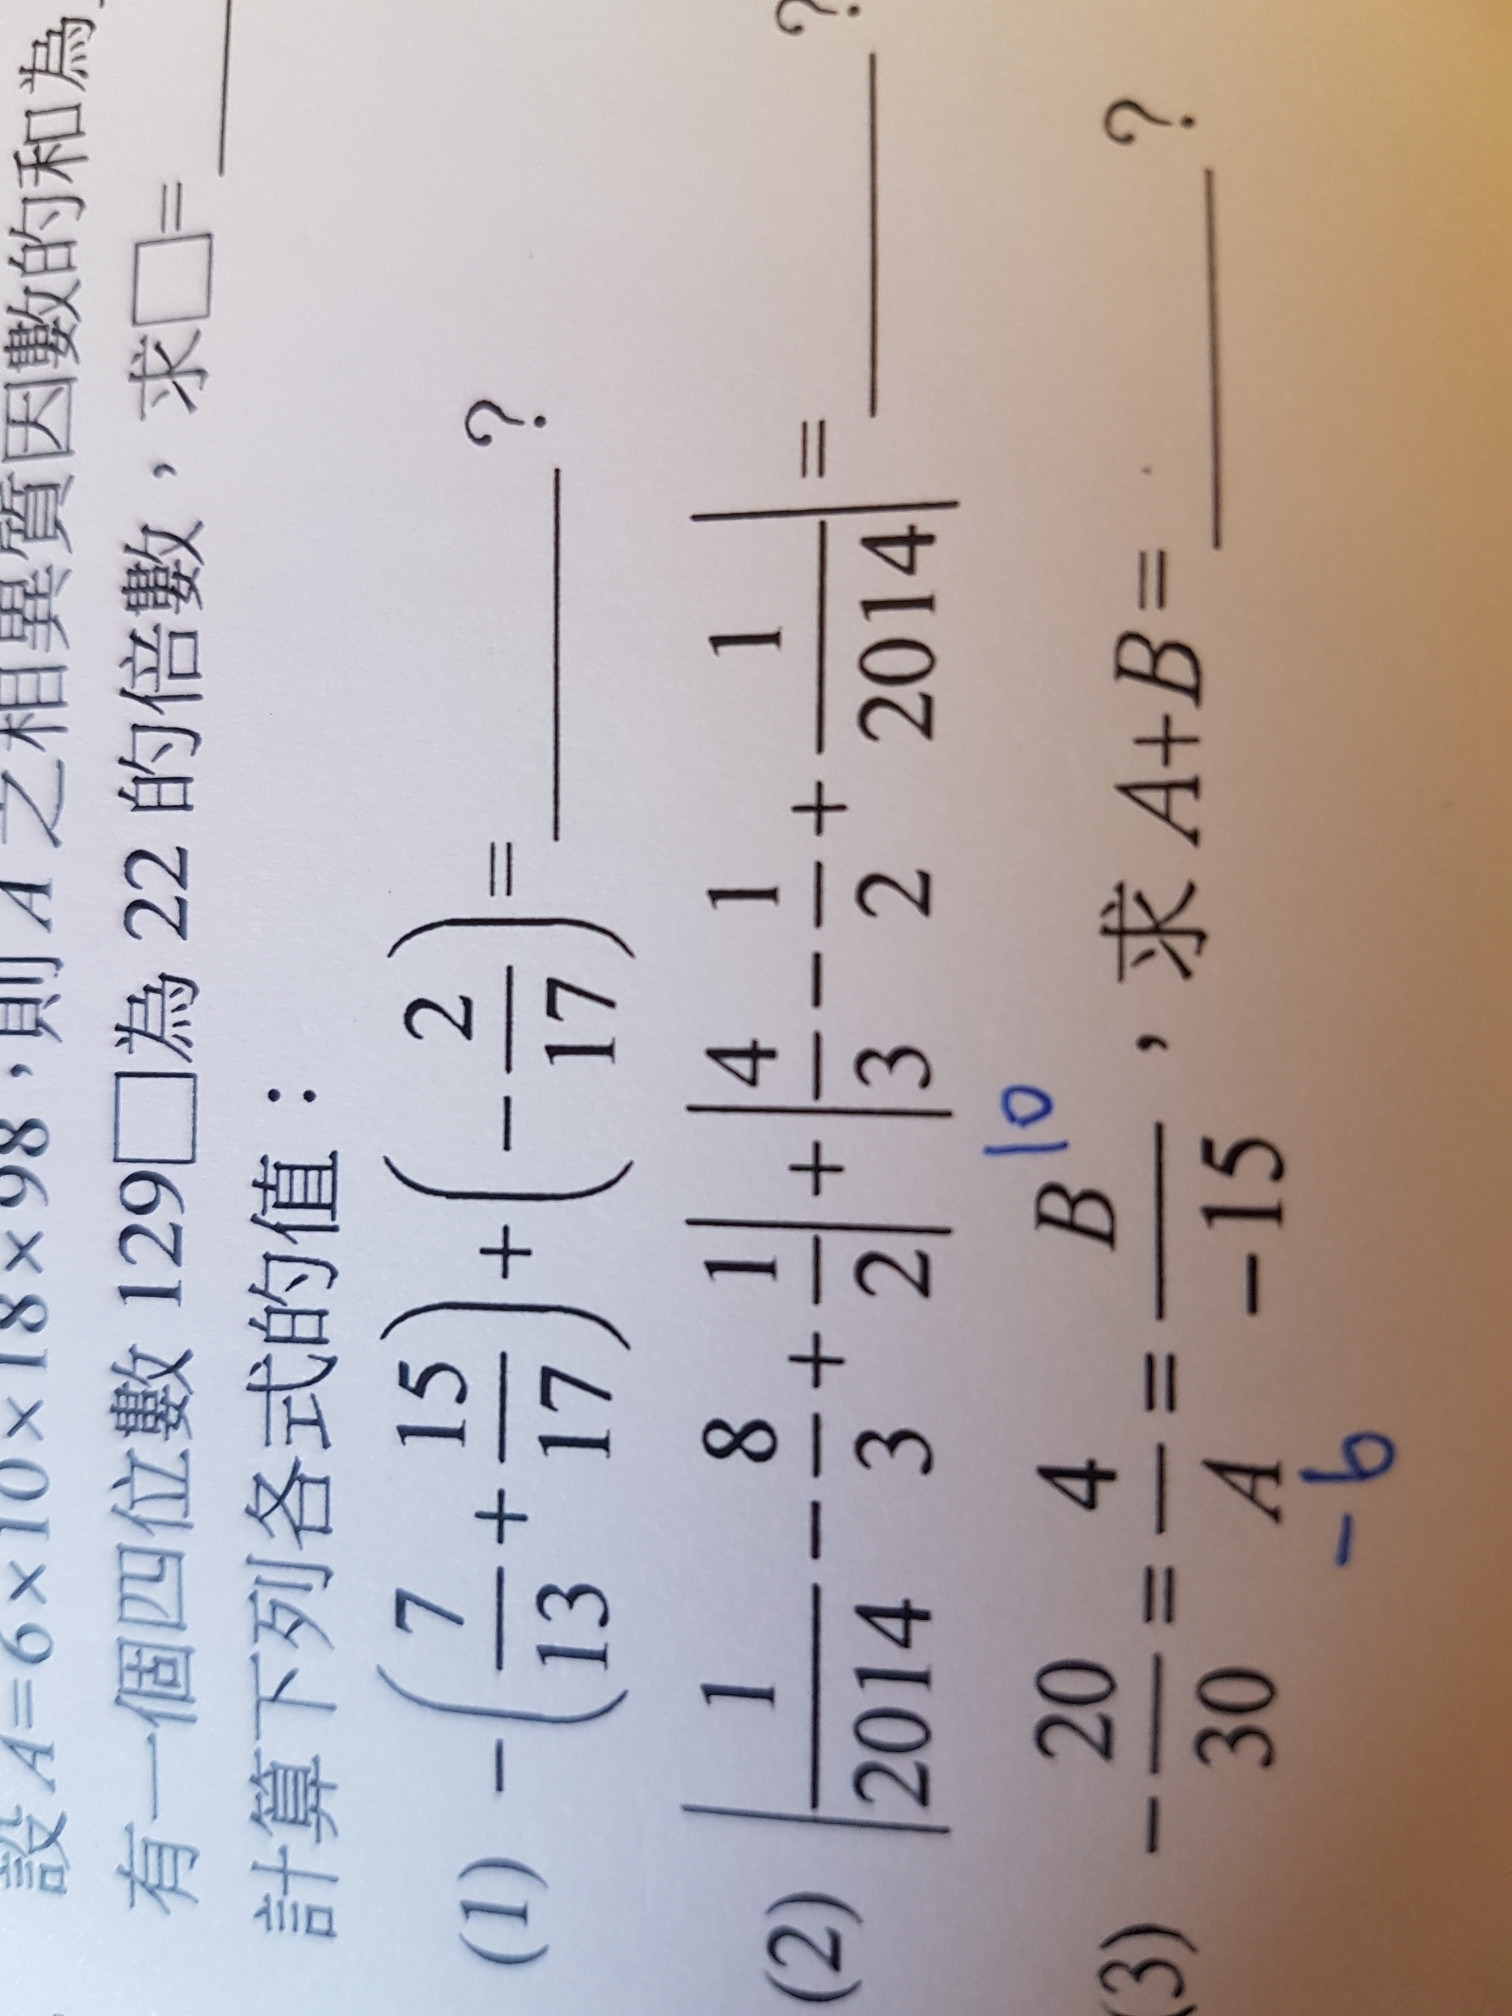 設 A=6×10×18×98,則 A 之相異質因數的和為
有一個四位數 129□為 22 的倍數，求□=
計算下列各式的值：
(1) -(7/13+15/17)+(-2/17)=______?
(2) |1/2014-8/3+1/2|+|4/3-1/2+1/2014|=______?
10
(3) -20/30=4/A=B/-15，求 A+B=______?
-6